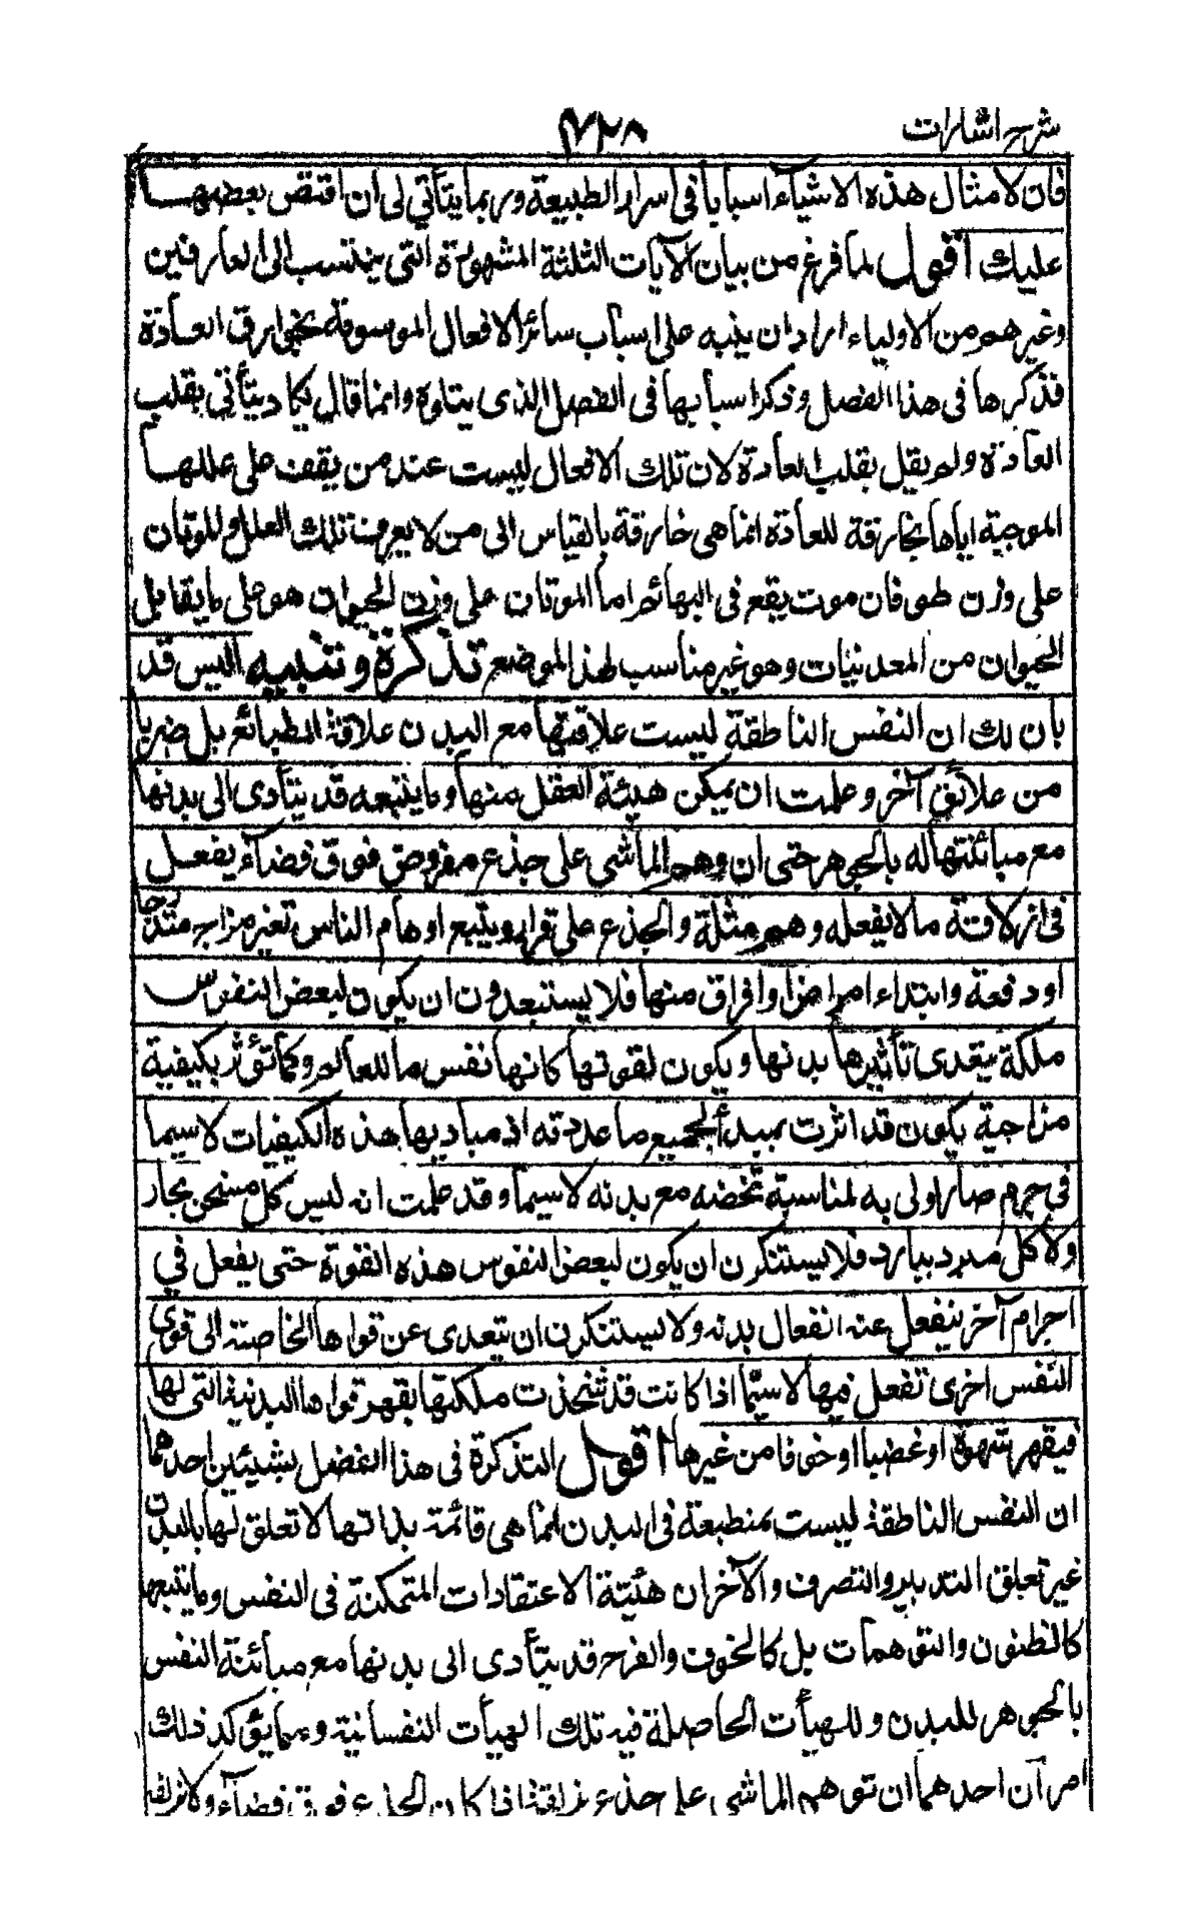 شرح اشارات
۷۲۸
فان لامثال هذه الاشياء اسبابا في اسرار الطبيعة وربما يتأتي لى ان اقتص بعضها
عليك اقول لما فرغ من بيان الآيات الثلثة المشهورة التى ينتسب الى العارفين
وغيرهم من الاولياء اراد ان ينبه على اسباب سائر الافعال الموسومة بخوارق العادة
فذكرها فى هذا الفصل وذكر اسبابها فى الفصل الذى يتلوه وانما قال يكاد يتأتى بقلب
العادة ولم يقل بقلب العادة لان تلك الافعال ليست عند من يقف على عللها
الموجبة اياها بخارقة للعادة انما هى خارقة بالقياس الى من لا يعرف تلك العلل والموتان
على وزن طوفان موت يقع فى البهائم اما الموتان على وزن الحيوان هو على ما يقابل
الحيوان من المعدنيات وهو غير مناسب لهذا الموضع تذكرة وتنبيه اليس قد
بان لك ان النفس الناطقة ليست علاقتها مع البدن علاقة انطباع بل ضربا
من علائق آخر وعلمت ان تمكن هيئة العقل منها وما يتبعه قد يتأدى الى بدنها
مع مبائنتها له بالجوهر حتى ان وهم الماشى على جذع مفروض فوق فضاء يفعل
فى ازلاقه ما لا يفعله وهم مثله والجذع على قرار ويتبع اوهام الناس تغير مزاج متدرجا
او دفعة وابتداء امراض او افراق منها فلا يستبعدون ان يكون لبعض النفوس
ملكة يتعدى تأثيرها بدنها ويكون لقوتها كانها نفس ما للعالم وكما تؤثر بكيفية
مزاجية يكون قد اثرت بمبدأ لجميع ما عددته اذ مباديها هذه الكيفيات لا سيما
فى جرم صار اولى به لمناسبة تخصه مع بدنه لا سيما وقد علمت انه ليس كل مسخن بحار
ولا كل مبرد ببارد فلا يستنكرن ان يكون لبعض النفوس هذه القوة حتى يفعل في
اجرام آخر ينفعل عنه انفعال بدنه ولا يستنكرن ان تتعدى عن قواها الخاصة الى قوى
النفس اخرى تفعل فيها لا سيما اذا كانت قد شحذت ملكتها بقهر قواها البدنية التى لها
فيقهر شهوة او غضبا او خوفا من غيرها اقول التذكرة فى هذا الفصل بشيئين احدهما
ان النفس الناطقة ليست بمنطبعة فى البدن انما هى قائمة بذاتها لا تعلق لها بالبدن
غير تعلق التدبير والتصرف والآخر ان هيئة الاعتقادات المتمكنة فى النفس وما يتبعها
كالظنون والتوهمات بل كالخوف والفرح قد يتأدى الى بدنها مع مبائنة النفس
بالجوهر للبدن وللهيأت الحاصلة فيه تلك الهيأت النفسانية ومما يؤكد ذلك
امران احدهما ان توهم الماشى على جذع يزلقه اذا كان الجذع فوق فضاء ولا يزلقه